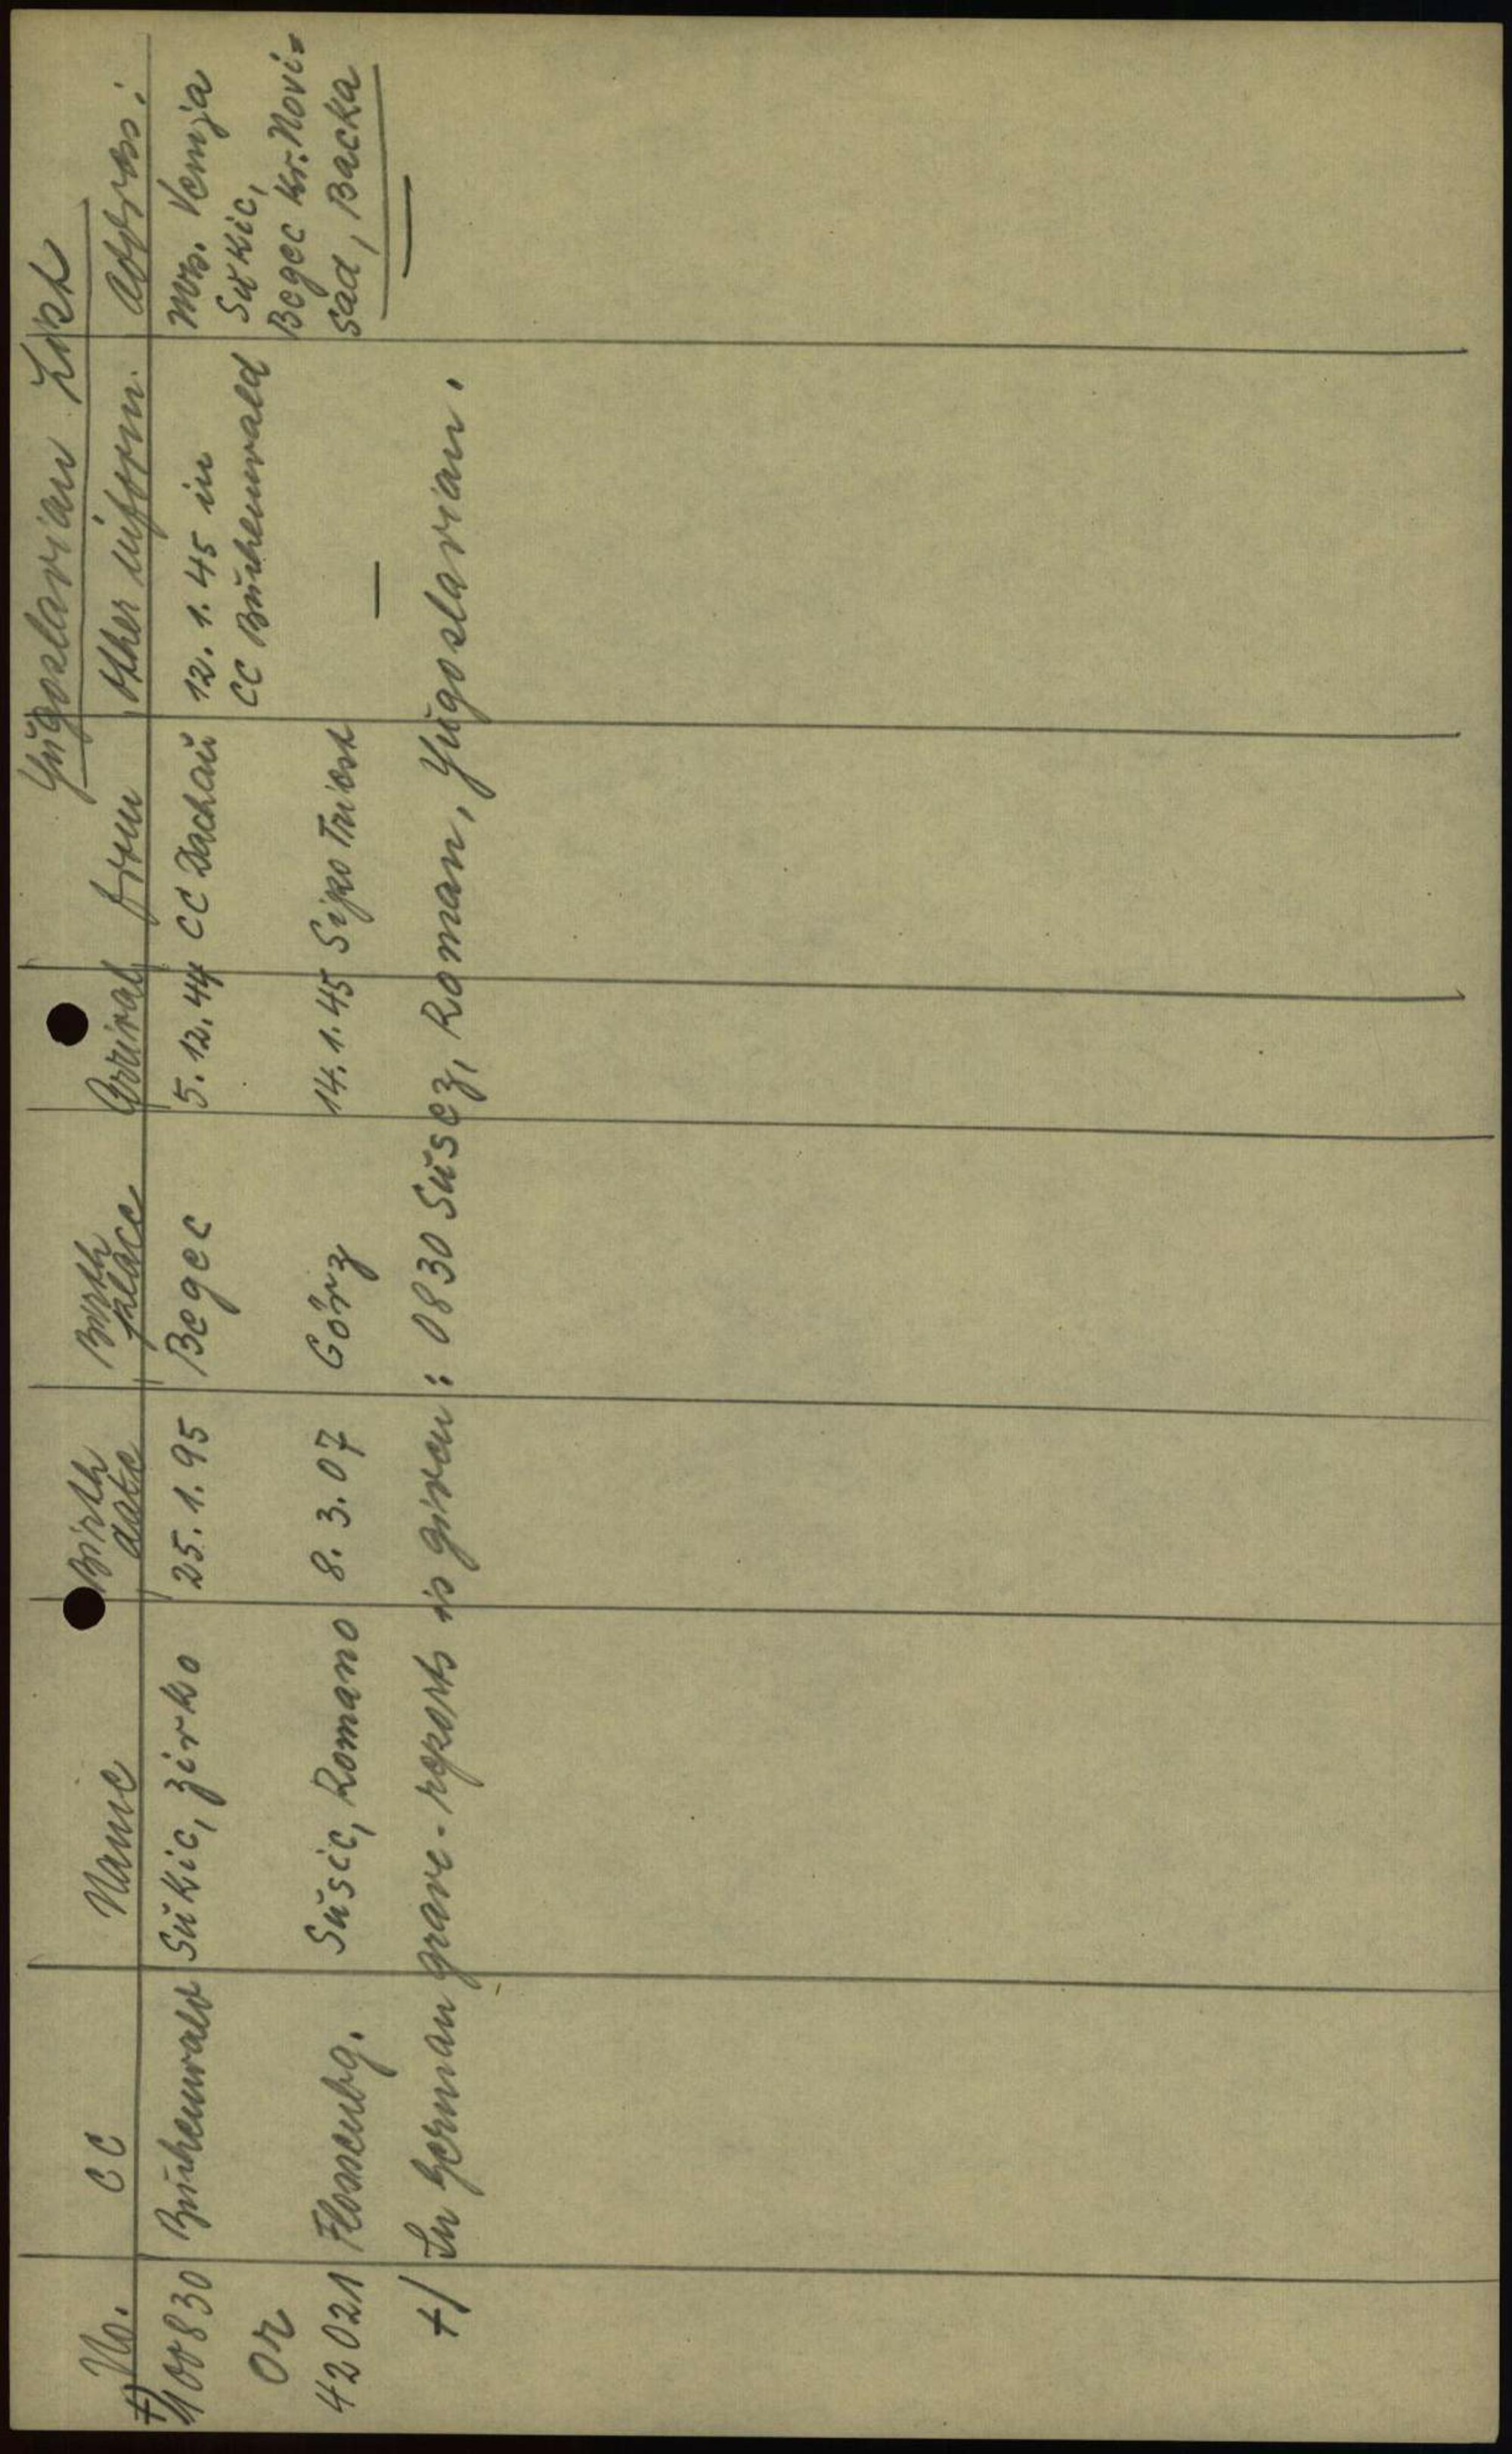 Yugoslavian List
No. CC Name Birth date Birth place Arrival from other inform. address:
+) 100830 Buchenwald Sukic, Zirko 25.1.95 Begec 5.12.44 CC Dachau 12.1.45 in Mrs. Vemja
CC Buchenwald Sukic,
or Begec Kr. Novi-
Sad, Backa
42021 Flossenbg. Susic, Romano 8.3.07 Görz 14.1.45 Sipo Triest — —
+/ In German grave-reports is given: 0830 Susez, Roman, Yugoslavian.